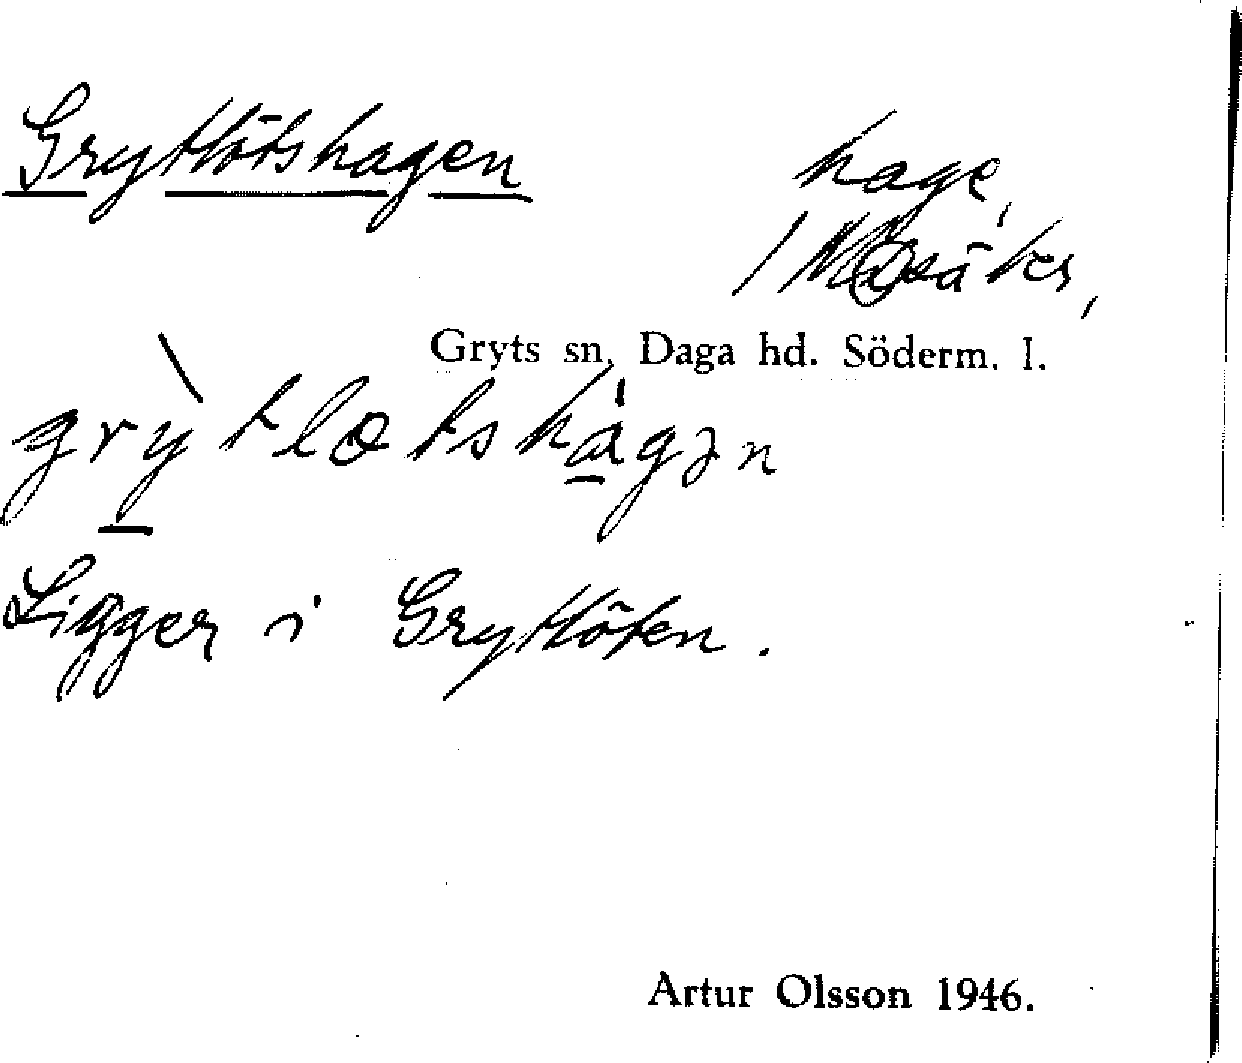 Gryttötshagen
hage,
1
Gryts sn, Daga hd. Söderm. l.
grỳtløtshágən
Ligger i Gryttöten.
Artur Olsson 1946.